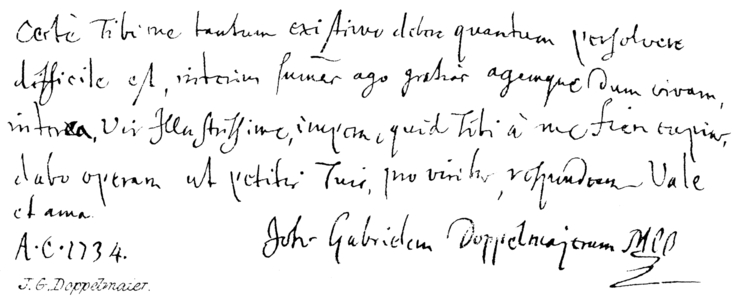 Certè Tibi me tantum existimo debere quantum persolvere
difficile est, interim sum̄as ago gratias agamque dum vivam,
interea, Vir Illustrissime, impera, quid Tibi à me fieri cupias,
dabo operam ut petitis Tuis, pro viribus, respondeam Vale
et ama
A.C. 1734. Joh. Gabrielem Doppelmajerum
J. G. Doppelmaier.